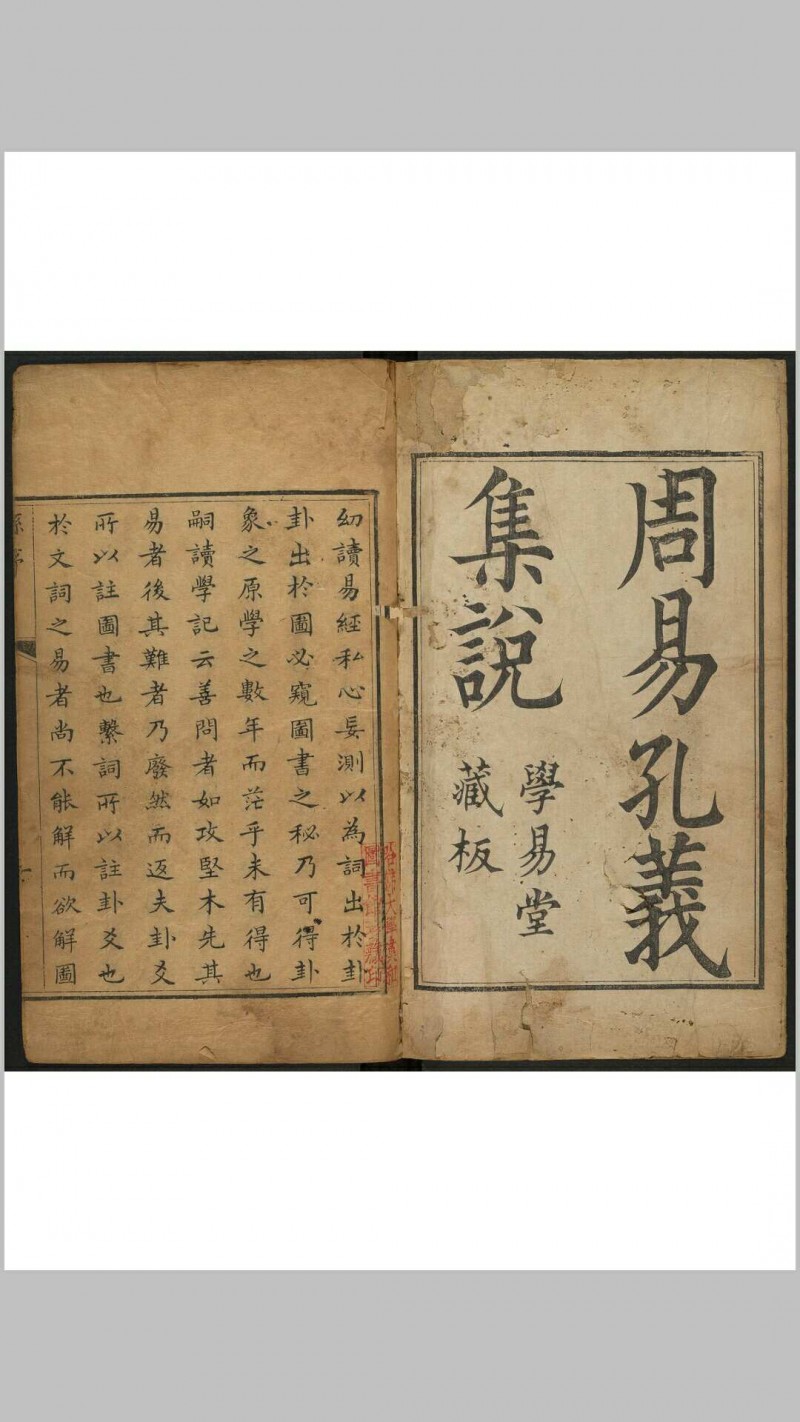 周易孔義
集說
學易堂
藏板
幼讀易經私心妄測以為詞出於卦
卦出於圖必窺圖書之秘乃可得卦
象之原學之數年而茫乎未有得也
嗣讀學記云善問者如攻堅木先其
易者後其難者乃廢然而返夫卦爻
所以註圖書也繫詞所以註卦爻也
於文詞之易者尚不能解而欲解圖